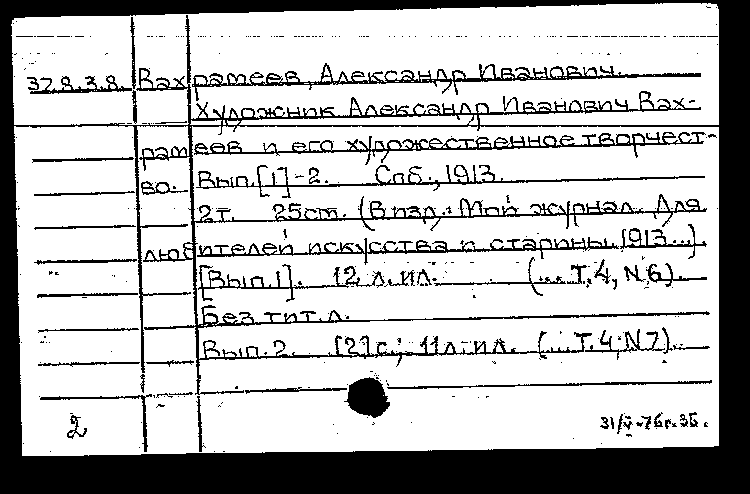 37.8.3.8. Вахрамеев, Александр Иванович.
Художник Александр Иванович Вах-
рамеев и его художественное творчест-
во. Вып.[1]-2. Спб., 1913.
2т. 25см. (В изд.: Мой журнал. Для
любителей искусства и старины. 1913...).
[Вып.1]. 12 л. ил. (... Т.4, N6).
Без тит. л.
Вып. 2. [2]с.; 11л. ил. (... Т.4, N7).
2 31/V-76г. ЗБ.